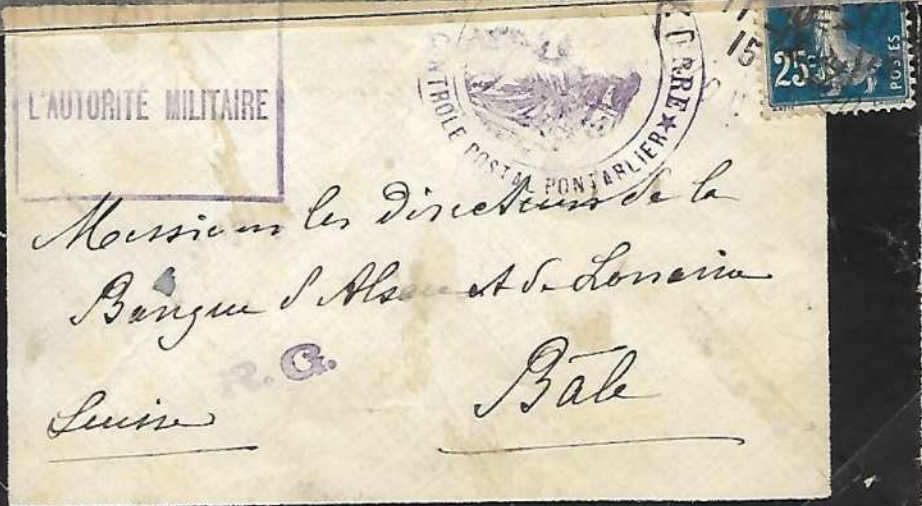 L'AUTORITÉ MILITAIRE
NTROLE POSTAL PONTARLIER ★
RRE
15
25c
POSTES
Messieurs les Directeurs de la
Banque d'Alsace et de Lorraine
R. G.
Bâle
Suisse